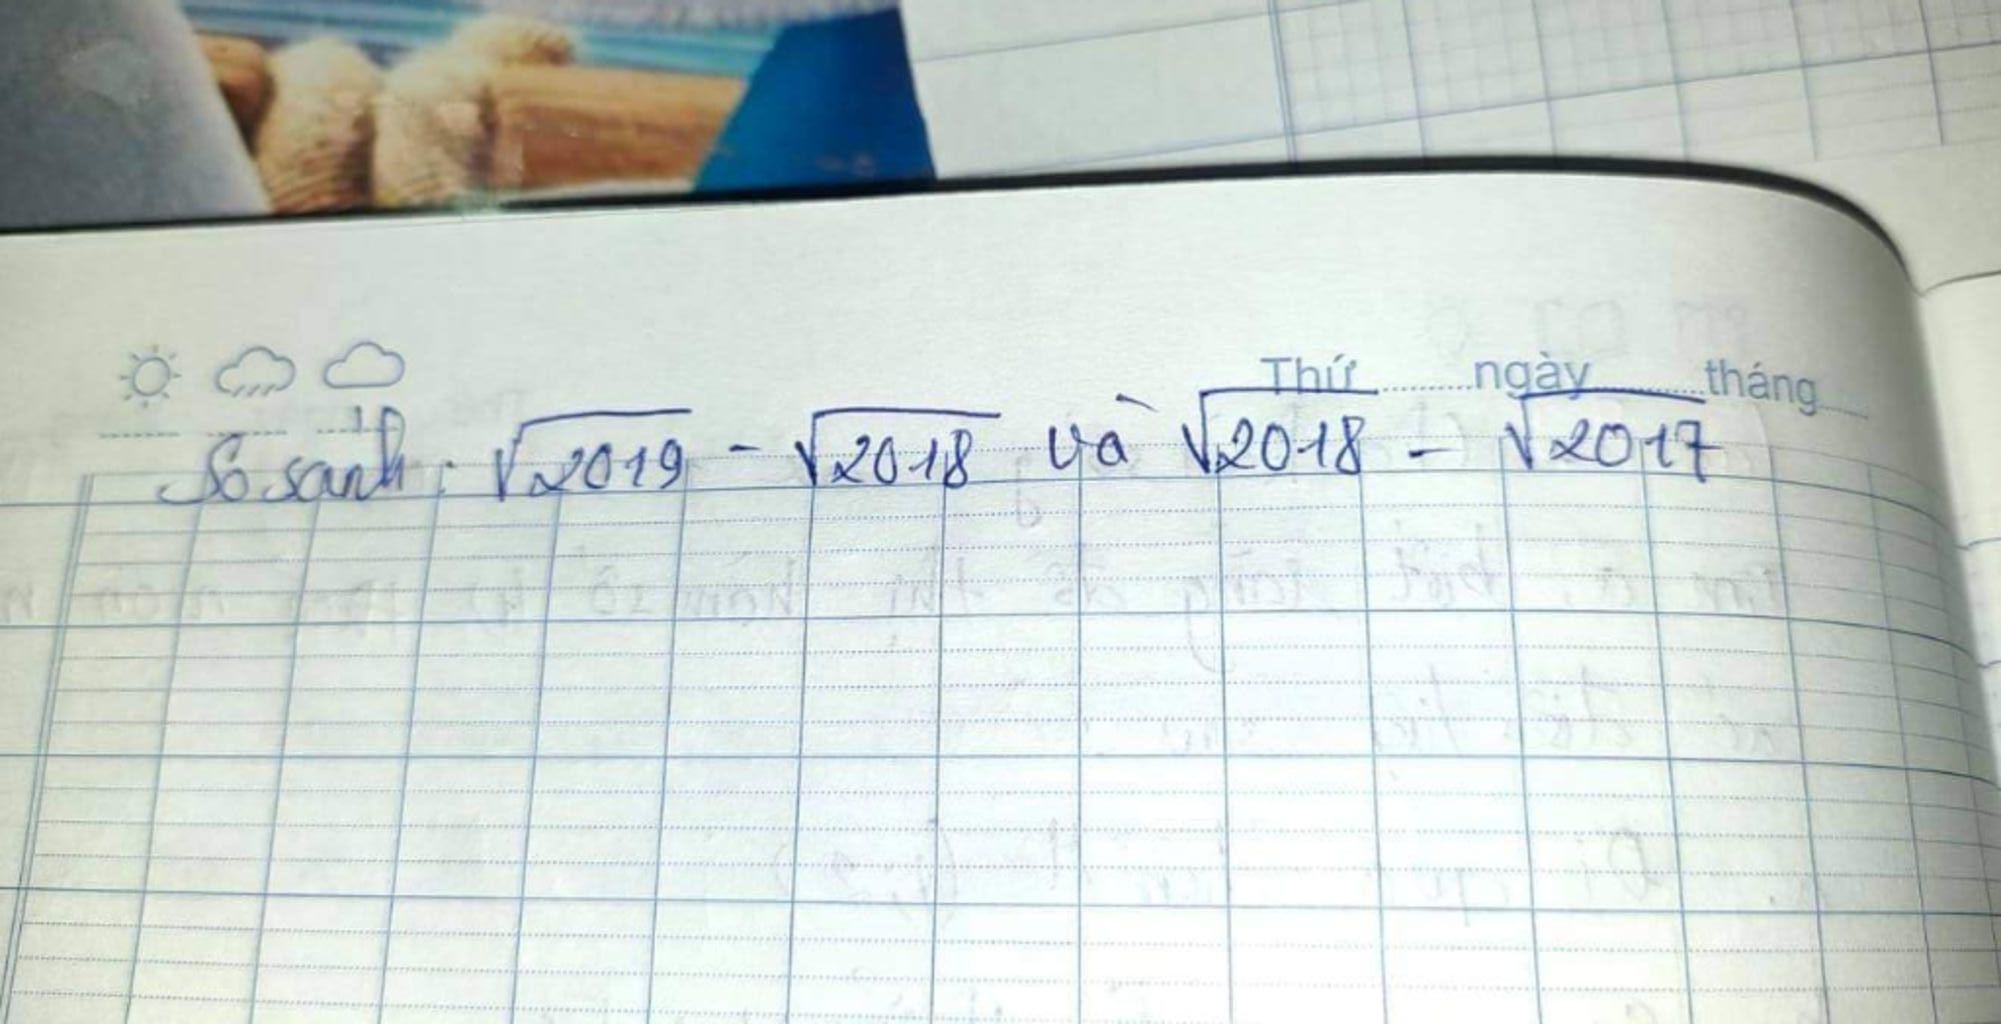 Thứ ngày tháng
So sánh: √2019 - √2018 và √2018 - √2017